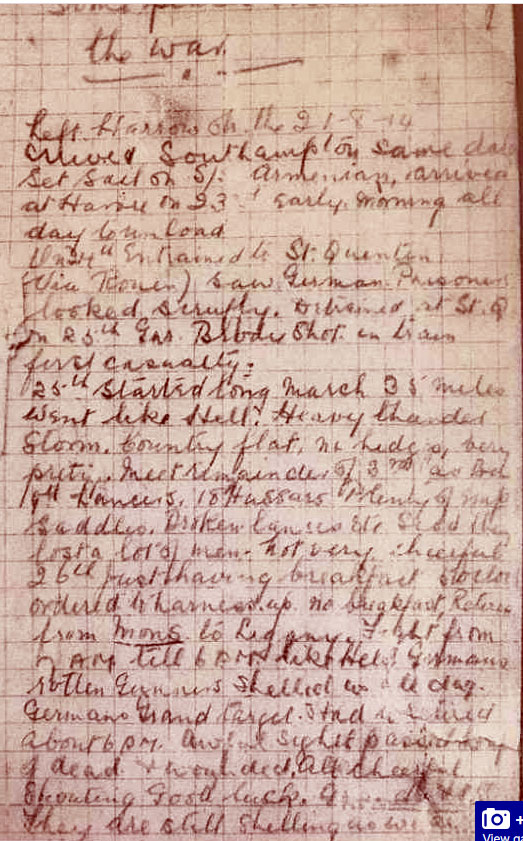 the war
Left Harrow on the 21-8-14
arrived Southampton same day
Set Sail on S/S Armenian, arrived
at Havre on 23rd early morning all
day to unload
On 24th Entrained to St. Quentin
(Via Rouen) saw German Prisoners
looked scruffy. Detrained at St. Q
on 25th Gnr. Brody Shot. in train
first casualty.
25th Started long march 35 miles
went like Hell! Heavy thunder
Storm. Country flat, no hedges, very
pretty. Meet remainder of 3rd
9th Lancers, 18 Hussars Plenty of empty
Saddles, Broken lances etc
lost a lot of men. not very cheerful
26th Just having breakfast
ordered to harness up. no breakfast, Retire
from Mons to Ligany. Fight from
7 AM till 6 PM. like Hell! Germans
rotten Gunners Shelled us all day.
Germans Grand Target.
about 6 PM. Awful Sight passed
of dead & wounded. All cheerful
Shouting Good luck.
They are still shelling us
View